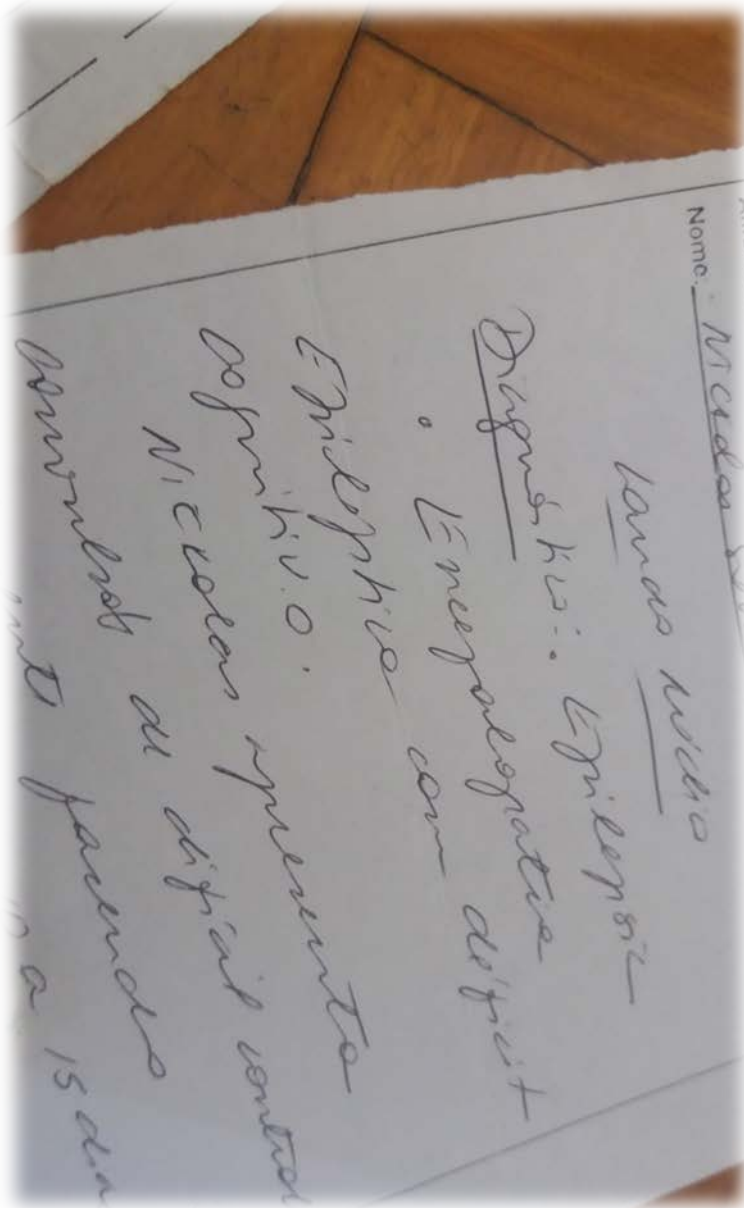 Nome: Nickolas
Laudo Médico
Diagnóstico: Epilepsia
. Encefalopatia
Epiléptica com déficit
cognitivo.
Nickolas apresenta
de difícil control
fazendo
a 15 dia